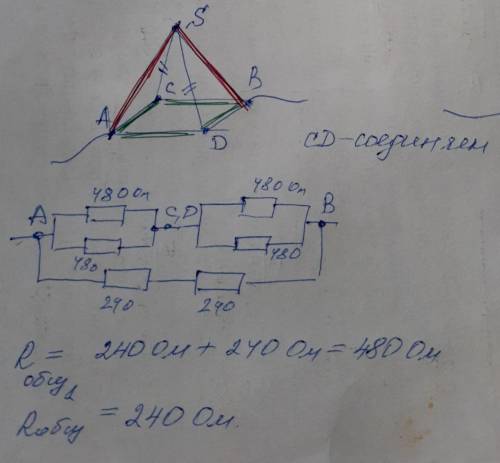 S
C
B
A
D
CD-соединяем
480 Ом
480 Ом
A
C,D
B
480
480
240
240
R = 240 Ом + 240 Ом = 480 Ом
общ1
Rобщ = 240 Ом.